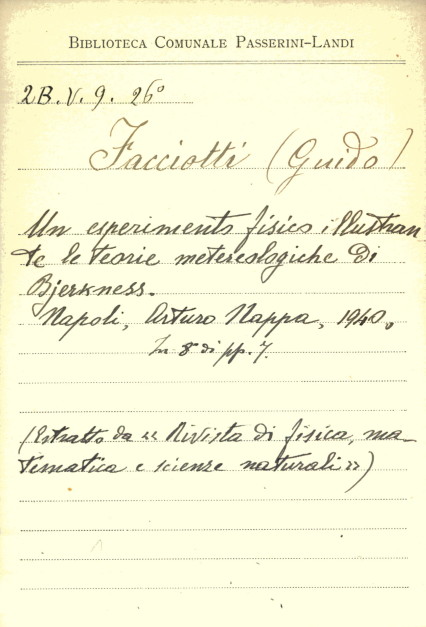 BIBLIOTECA COMUNALE PASSERINI-LANDI
2B.V.9. 26°
Facciotti (Guido)
Un esperimento fisico illustran
te le teorie metereologiche di
Bjerkness.
Napoli, Arturo Nappa, 1940.
In 8° di pp. 7.
(Estratto da « Rivista di fisica, ma-
tematica e scienze naturali »)